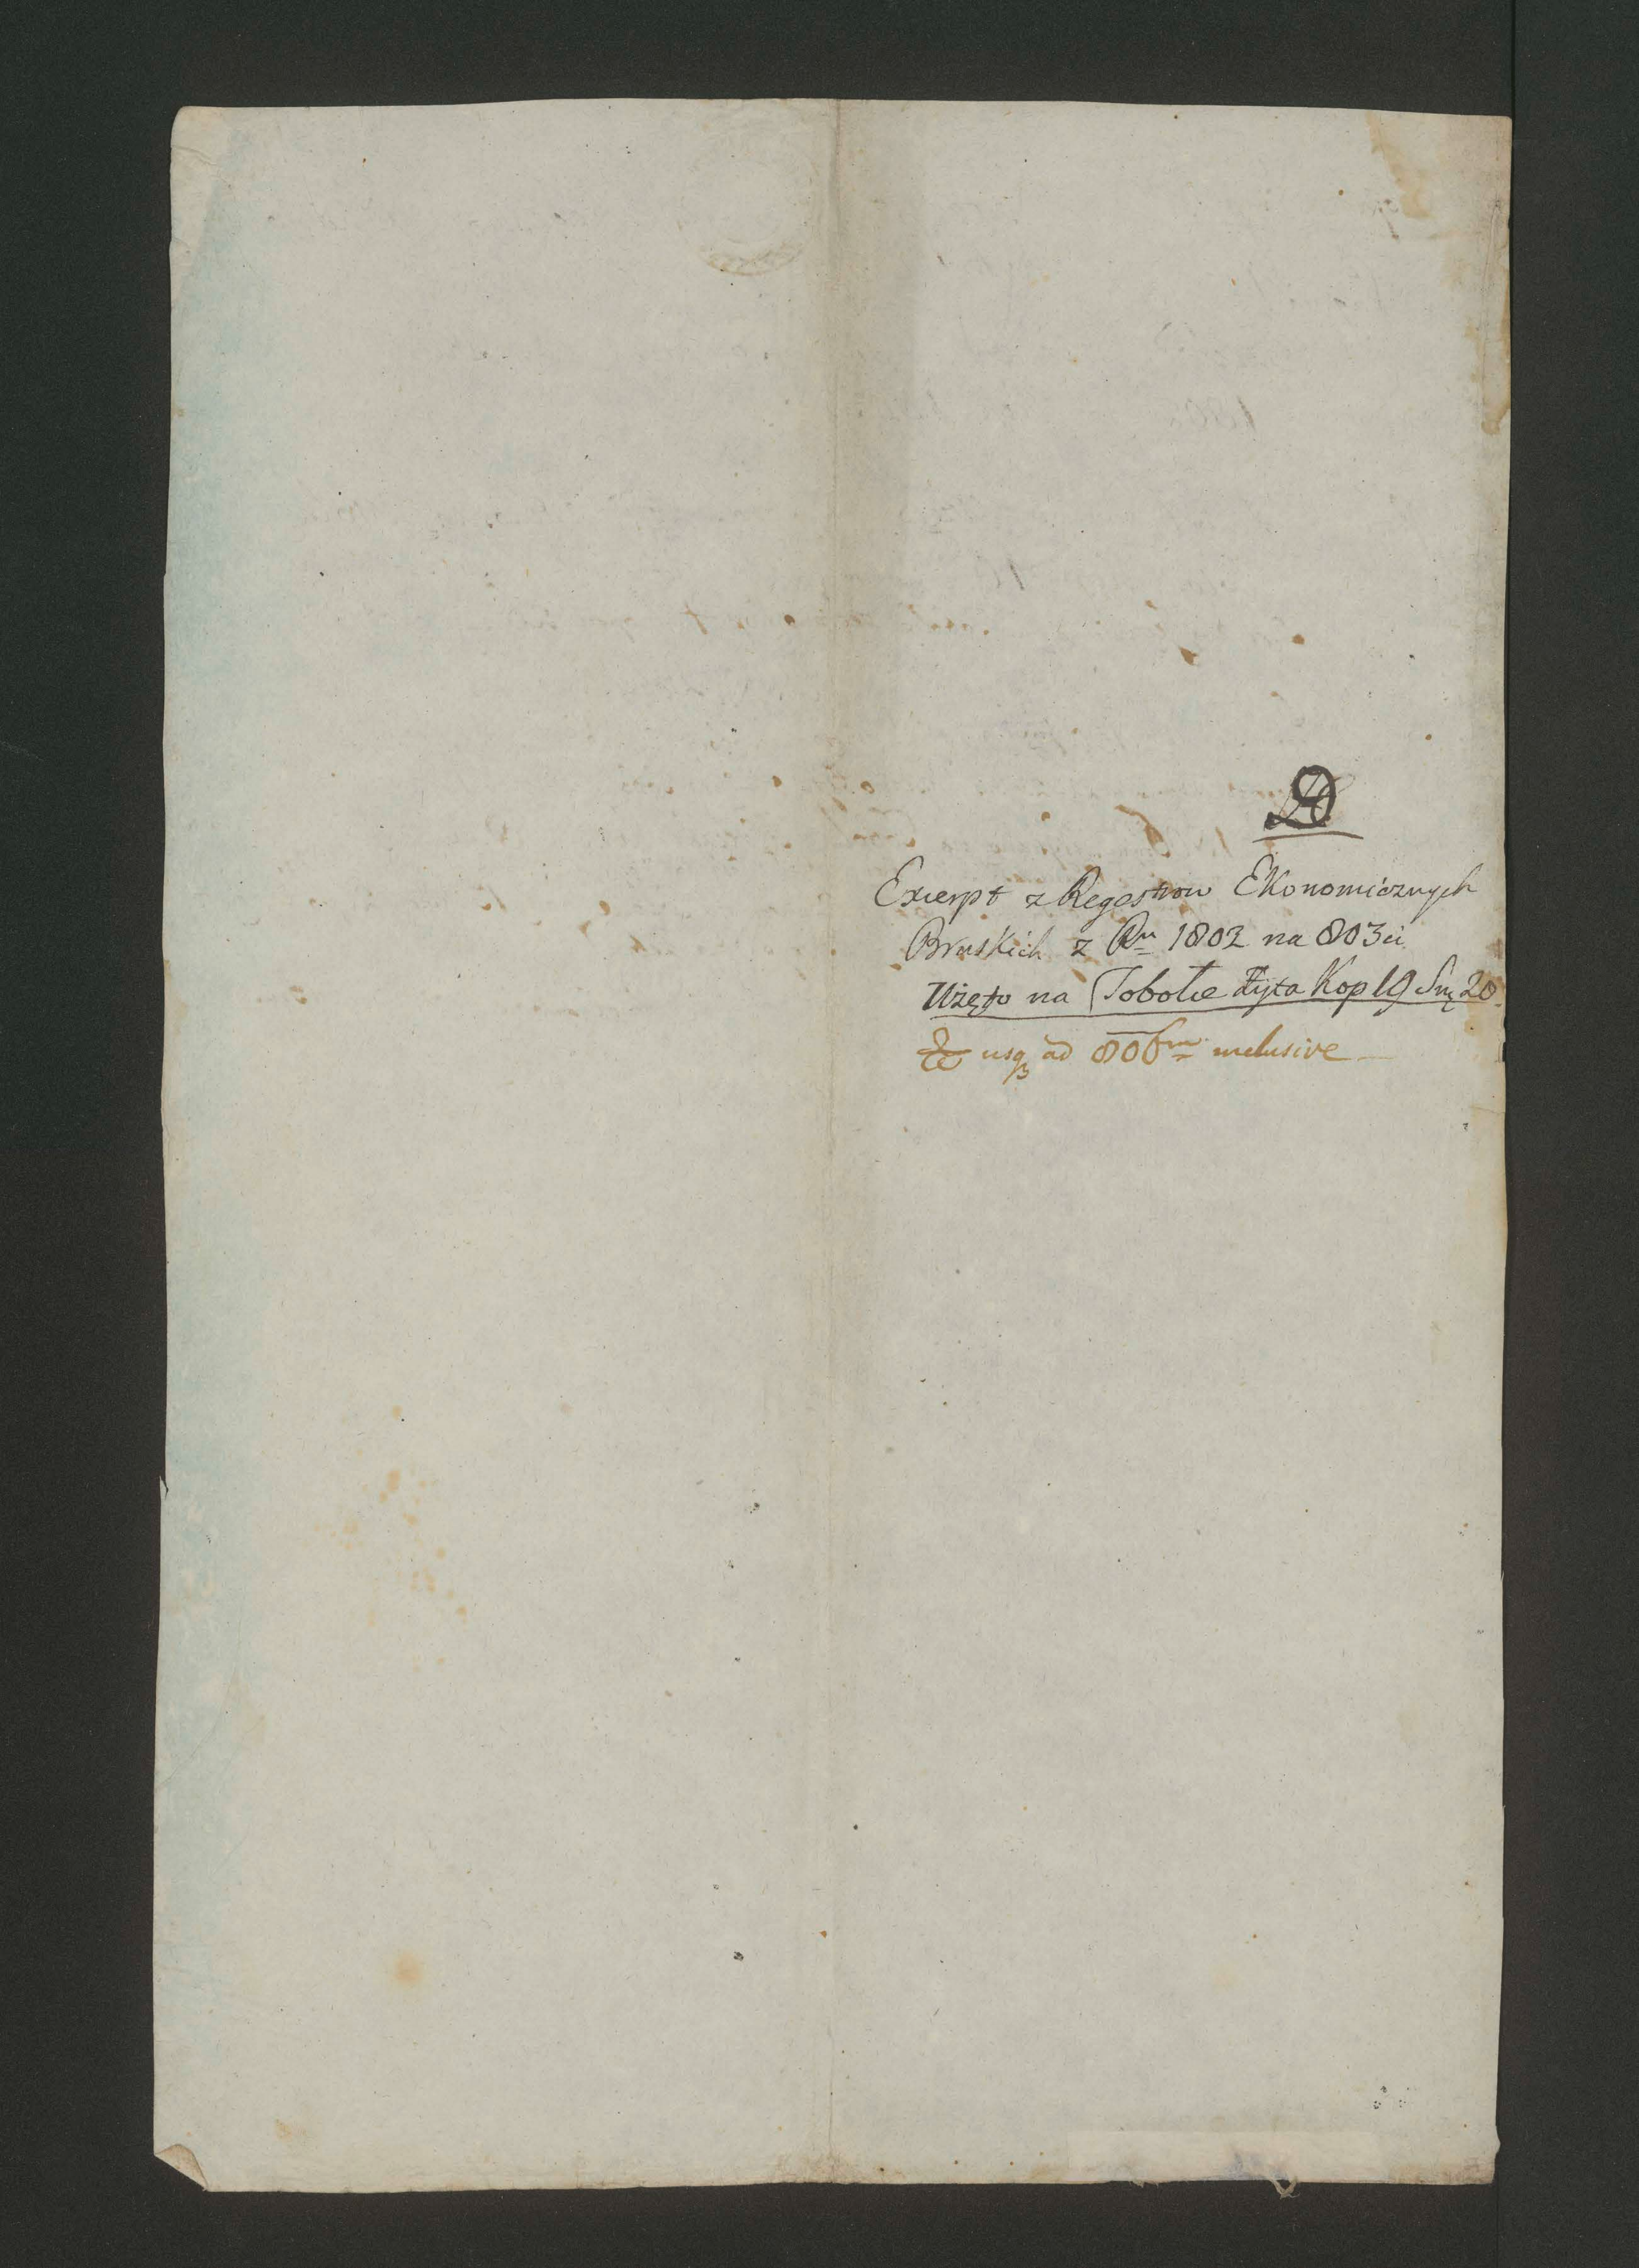 D
Excerpt z Regestrow Ekonomicznych
Bruskich z Ru 1802 na 803ci
Użęto na Tobole żyta Kop 19 Sną 20
& usq ad 806m inclusive